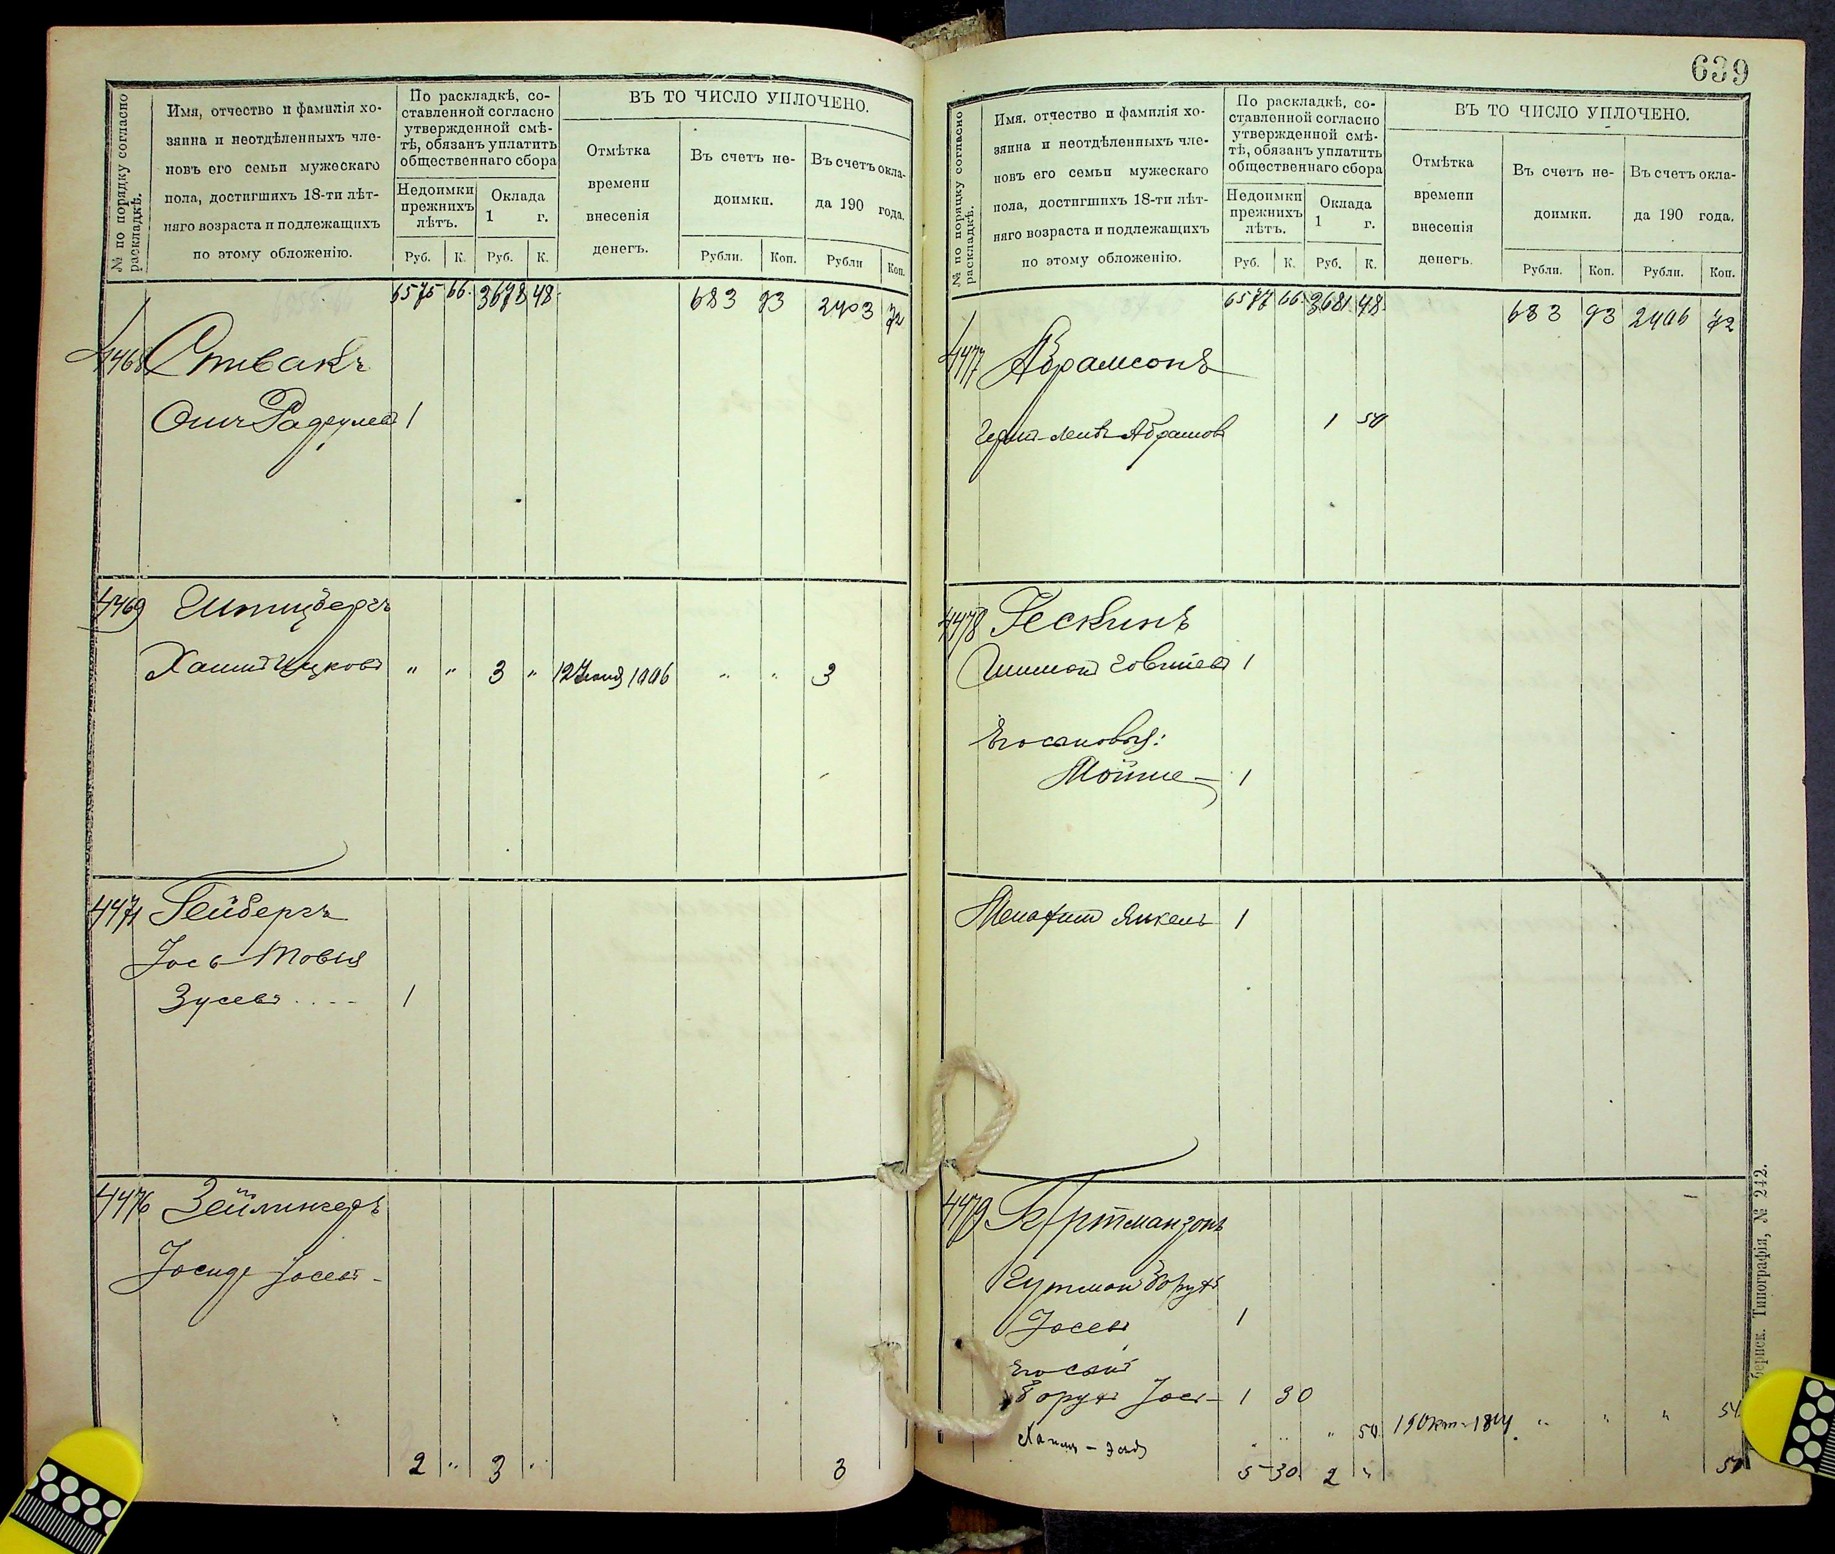 639
№ по порядку согласно раскладкѣ.
Имя, отчество и фамилія хо-
зяина и неотдѣленныхъ чле-
новъ его семьи мужескаго
пола, достигшихъ 18-ти лѣт-
няго возраста и подлежащихъ
по этому обложенію.
По раскладкѣ, со-
ставленной согласно
утвержденной смѣ-
тѣ, обязанъ уплатить
общественнаго сбора
Недоимки
прежнихъ
лѣтъ.
Оклада
1 г.
Руб. К. Руб. К.
ВЪ ТО ЧИСЛО УПЛОЧЕНО.
Отмѣтка
времени
внесенія
денегъ.
Въ счетъ не-
доимки.
Въ счетъ окла-
да 190 года.
Рубли. Коп. Рубли Коп.
6575 66 3678 48 683 93 2403 72
4468 Спивакъ
1
4469 Шпицбергъ
Хаимъ Ицковъ " " 3 " 12 1906 " " 3
4471 Гейбергъ
Іось Товія
Зусевъ 1
4476 Зейлингеръ
2 " 3 " 3
№ по порядку согласно раскладкѣ.
Имя, отчество и фамилія хо-
зяина и неотдѣленныхъ чле-
новъ его семьи мужескаго
пола, достигшихъ 18-ти лѣт-
няго возраста и подлежащихъ
по этому обложенію.
По раскладкѣ, со-
ставленной согласно
утвержденной смѣ-
тѣ, обязанъ уплатить
общественнаго сбора
Недоимки
прежнихъ
лѣтъ.
Оклада
1 г.
Руб. К. Руб. К.
ВЪ ТО ЧИСЛО УПЛОЧЕНО.
Отмѣтка
времени
внесенія
денегъ.
Въ счетъ не-
доимки.
Въ счетъ окла-
да 190 года.
Рубли. Коп. Рубли. Коп.
6577 66 3681 48 683 93 2406 72
4477 Абрамсонъ
Абрамовъ 1 50
4478 Гескинъ
1
Его сыновья:
Мойше 1
Янкель 1
4479
Іосевъ 1
Его сынъ
Борухъ 1 30
" " " 50 " " " 50
5 30 2 " 50
Типографія, № 242.